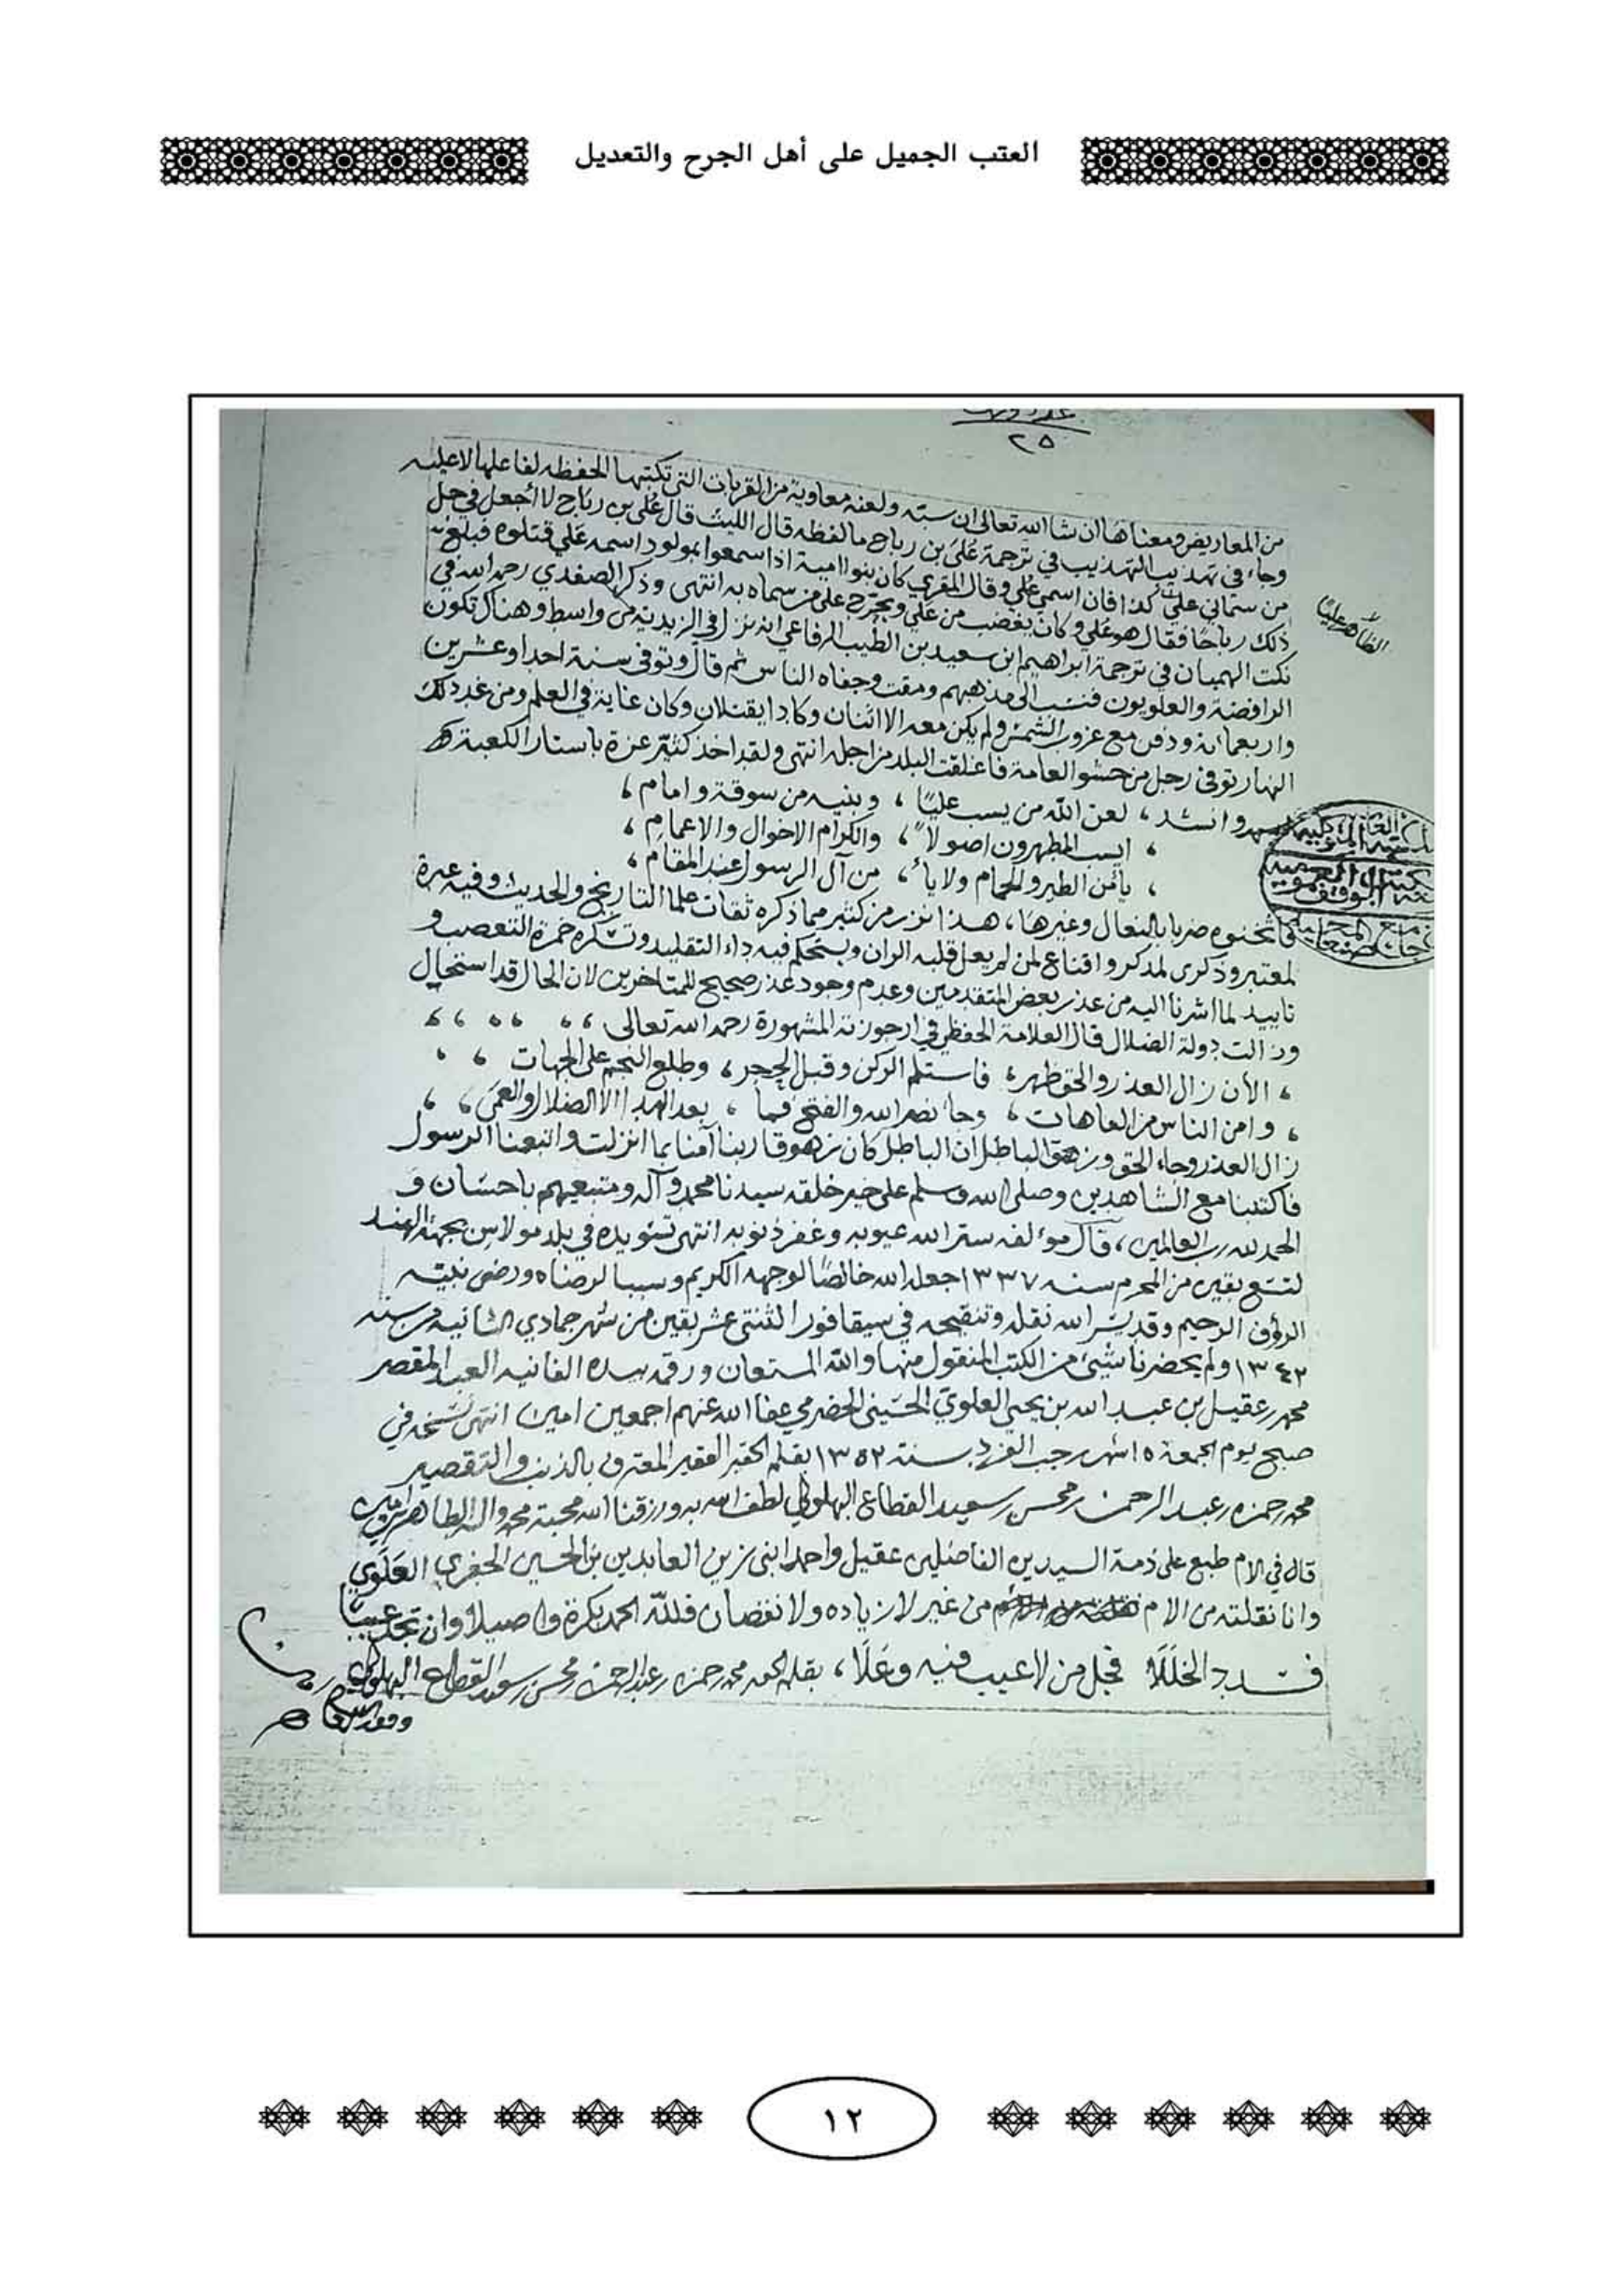 العتب الجميل على أهل الجرح والتعديل
٢٥
من المعاريض ومعناها ان شا الله تعالى ان سبه ولعنه معاوية من القربات التي تكتبها الحفظه لفاعلها لا عليه
وجاء في تهذيب التهذيب في ترجمة علي بن رباح ما لفظه قال الليث قال علي بن رباح لا اجعل في حل
من سماني علي فان اسمي علي وقال المقري كان بنوا امية اذا سمعوا بمولود اسمه علي قتلوه فبلغ
ذلك رباحا فقال هو علي وكان يغضب من علي ويحرج على من سماه به انتهى وذكر الصفدي رحمه الله في
نكت الهميان في ترجمة ابراهيم ابن سعيد بن الطيب الرفاعي انه نزل في الزيدية من واسط وهناك تكون
الرافضة والعلويون فنسب الى مذهبهم ومقت وجفاه الناس ثم قال وتوفى سنة احدا وعشرين
واربعمائة ودفن مع غروب الشمس ولم يكن معه الا اثنان وكادا يقتلان وكان غاية في العلم ومن غد ذلك
النهار توفى رجل من حشو العامة فاغلقت البلد من اجله انتهى ولقد اخذ كثير عزة باستار الكعبة
وانشد ، لعن الله من يسب عليا ، وبنيه من سوقة وامام ،
، ايسب المطهرون اصولا ، والكرام الاخوال والاعمام ،
، يأمن الطير والحمام ولا يأ ، من آل الرسول عند المقام ،
فاثخنوه ضربا بالنعال وغيرها ، هذا نزر من كثير مما ذكره ثقات علما التاريخ والحديث وفيه عبرة
لمعتبر وذكرى لمدكر واقناع لمن لم يعل قلبه الران ويستحكم فيه داء التقليد وتسكره خمرة التعصب و
تاييد لما اشرنا اليه من عذر بعض المتقدمين وعدم وجود عذر صحيح للمتاخرين لان الحال قد استحال
وزالت دولة الضلال قال العلامة الحفظي في ارجوزته المشهورة رحمه الله تعالى ،،
، الأن زال العذر والحق ظهر ، فاستلم الركن وقبل الحجر ، وطلع النجم على الجهات ،
، وامن الناس من العاهات ، وجا نصر الله والفتح فما ، بعد الهدا الا الضلال والعمى ،
زال العذر وجاء الحق وزهق الباطل ان الباطل كان زهوقا ربنا آمنا بما انزلت واتبعنا الرسول
فاكتبنا مع الشاهدين وصلى الله وسلم على خير خلقه سيدنا محمد وآله ومتبعيهم باحسان و
الحمد لله رب العالمين ، قال مؤلفه ستر الله عيوبه وغفر ذنوبه انتهى تسويده في بلد مولاس بجهة الهند
لتسع بقين من المحرم سنه ١٣٣٧ جعله الله خالصًا لوجهه الكريم وسببا لرضاه ورضى نبيه
الرؤف الرحيم وقد يسر الله نقله وتنقيحه في سيقافورا لثنتي عشر بقين من شهر جمادي الثانيه من سنه
١٣٤٢ ولم يحضرنا شيئ من الكتب المنقول منها والله المستعان ورقمه بيده الفانيه العبد المقصر
محمد بن عقيل بن عبد الله بن يحيى العلوي الحسيني الحضرمي عفا الله عنهم اجمعين امين انتهى نسخه في
صبح يوم الجمعه ١٥ شهر رجب الفرد سنة ١٣٥٢ بقلم الحقير الفقير المعترف بالذنب والتقصير
محمد حمزه بن عبد الرحمن بن محسن بن سعيد القطاع البهلولي لطف الله به ورزقنا الله محبة محمد واله الطاهرين امين
قال في الام طبع على ذمة السيدين الفاضلين عقيل واحمد ابني زين العابدين بن الحسين الجفري العلوي
وانا نقلته من الام من غير لا زياده ولا نقصان فلله الحمد بكرة واصيلا وان تجد عيبًا
فسد الخللا فجل من لا عيب فيه وعلا ، بقلم محمد حمزه بن عبد الرحمن بن محسن بن سعيد القطاع البهلولي
١٢